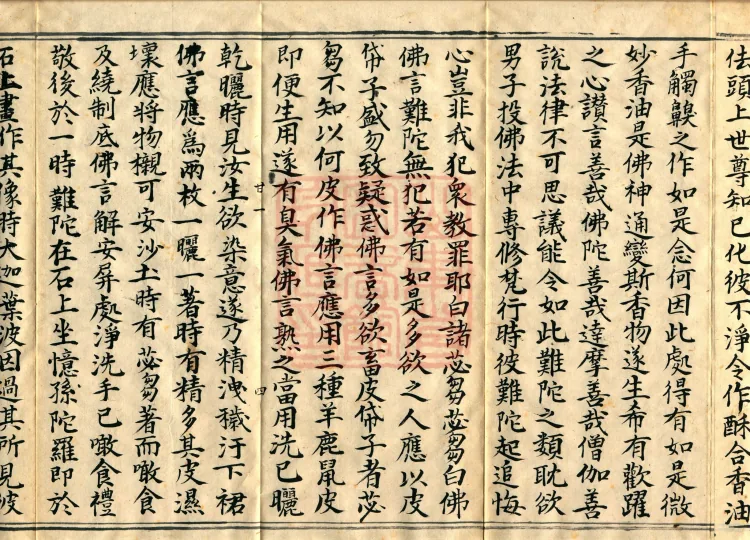 佉頭上世尊知已化彼不淨令作酥合香油
手觸鼻之作如是念何因此處得有如是微
妙香油是佛神通變斯香物遂生希有歡躍
之心讚言善哉佛陀善哉達摩善哉僧伽善
說法律不可思議能令如此難陀之類耽欲
男子投佛法中專修梵行時彼難陀起追悔
心豈非我犯衆教罪耶白諸苾芻苾芻白佛
佛言難陀無犯若有如是多欲之人應以皮
帒子盛勿致疑惑佛言多欲畜皮帒子者苾
芻不知以何皮作佛言應用三種羊鹿鼠皮
即便生用遂有臭氣佛言熟之當用洗已曬
乾曬時見汝生欲染意遂乃精洩穢汙下裙
佛言應爲兩枚一曬一著時有精多其皮濕
壞應將物櫬可安沙土時有苾芻著而噉食
及繞制底佛言解安屏處淨洗手已噉食禮
敬後於一時難陀在石上坐憶孫陀羅即於
石上畫作其像時大迦葉波因過其所見彼
廿一
四